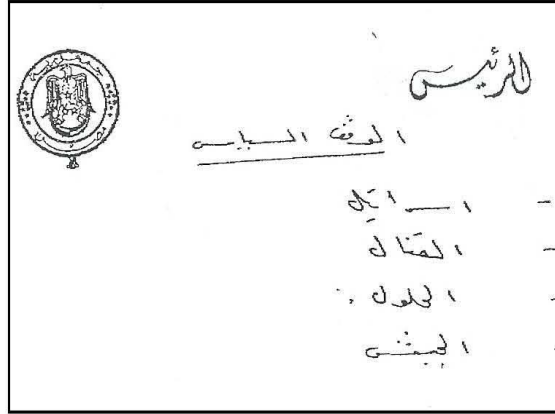 الرئيس
الموقف السياسى
- اسرائيل
- القتال
- الحلول :
- الجيش